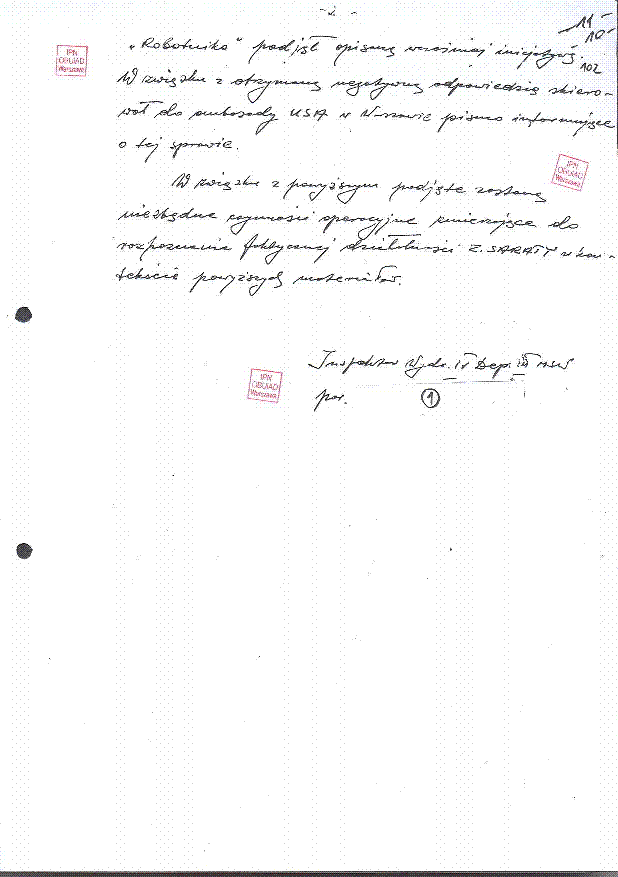 - 2 -
11
10
102
IPN
OBUiAD
Warszawa
„Robotnika" podjął opisaną wcześniej inicjatywę.
W związku z otrzymaną negatywną odpowiedzią skiero-
wał do ambasady USA w W-wie pismo informujące
o tej sprawie.
IPN
OBUiAD
Warszawa
W związku z powyższym podjęte zostaną
niezbędne czynności operacyjne zmierzające do
rozpoznania faktycznej działalności Z. SARATY w kon-
tekście powyższych materiałów.
Inspektor Wydz. IV Dep. III MSW
IPN
OBUiAD
Warszawa
por.
1